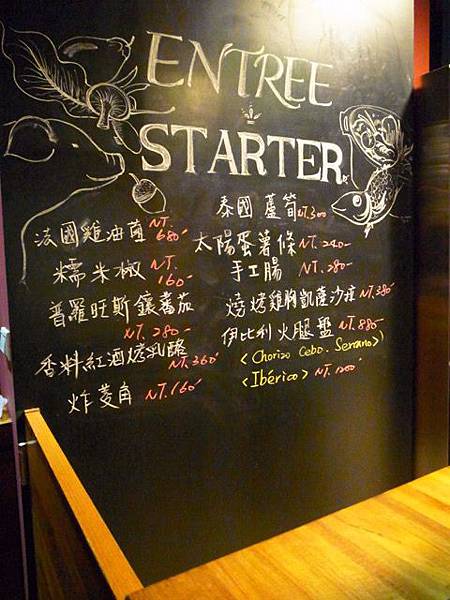 ENTREE
STARTER
法國雞油菌 NT. 680-
糯米椒 NT. 160-
普羅旺斯鑲番茄
NT. 280-
香料紅酒烤乳酪 NT. 360
炸菱角 NT. 160
泰國 蘆筍 NT. 300
太陽蛋薯條 NT. 240-
手工腸 NT. 280-
燒烤雞胸凱薩沙拉 NT. 380
伊比利火腿盤 NT. 880-
<Chorizo Cebo. Serrano>
<Ibérico> NT. 1200